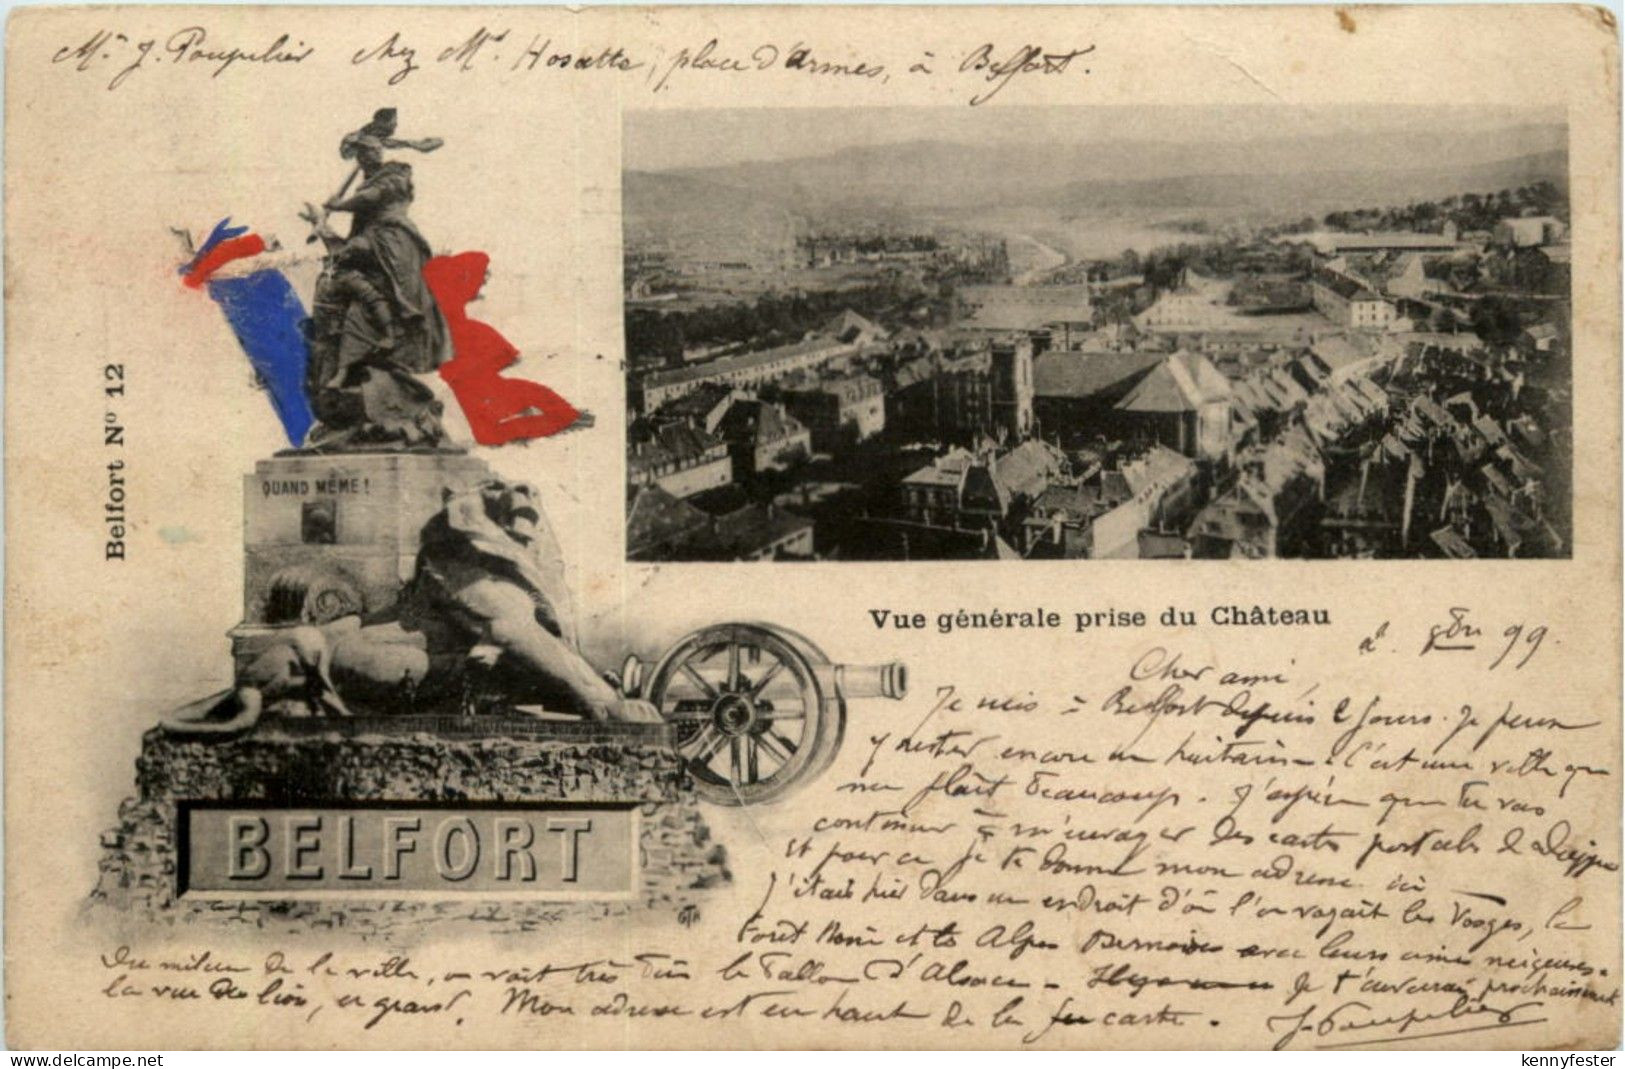 Mr J. Poupelier chez Md Hosatte, place d'Armes, à Belfort.
Belfort No 12
QUAND MÊME !
Vue générale prise du Château
2. 8bre 99.
Cher ami,
Je suis à Belfort depuis 2 jours. Je peux
y rester encore un huitaine. C'est une ville qui
me plaît beaucoup. J'espère que tu vas
continuer à m'envoyer des cartes postales de Dieppe
et pour ce je te donne mon adresse ici
J'étais hier dans un endroit d'où l'on voyait les Vosges, la
Forêt Noire et les Alpes Bernoises avec leurs cimes neigeuses.
BELFORT
Du milieu de la ville, on voit très bien le Ballon d'Alsace - Je t'enverrai prochainement
la vue du lion, en grand. Mon adresse est en haut de la carte.
J. Poupelier
www.delcampe.net
kennyfester